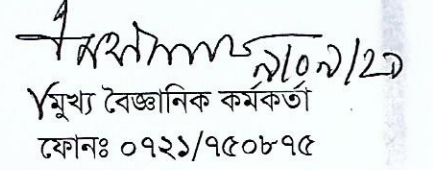 মুখ্য বৈজ্ঞানিক কর্মকর্তা
ফোনঃ ০৭২১/৭৫০৮৭৫